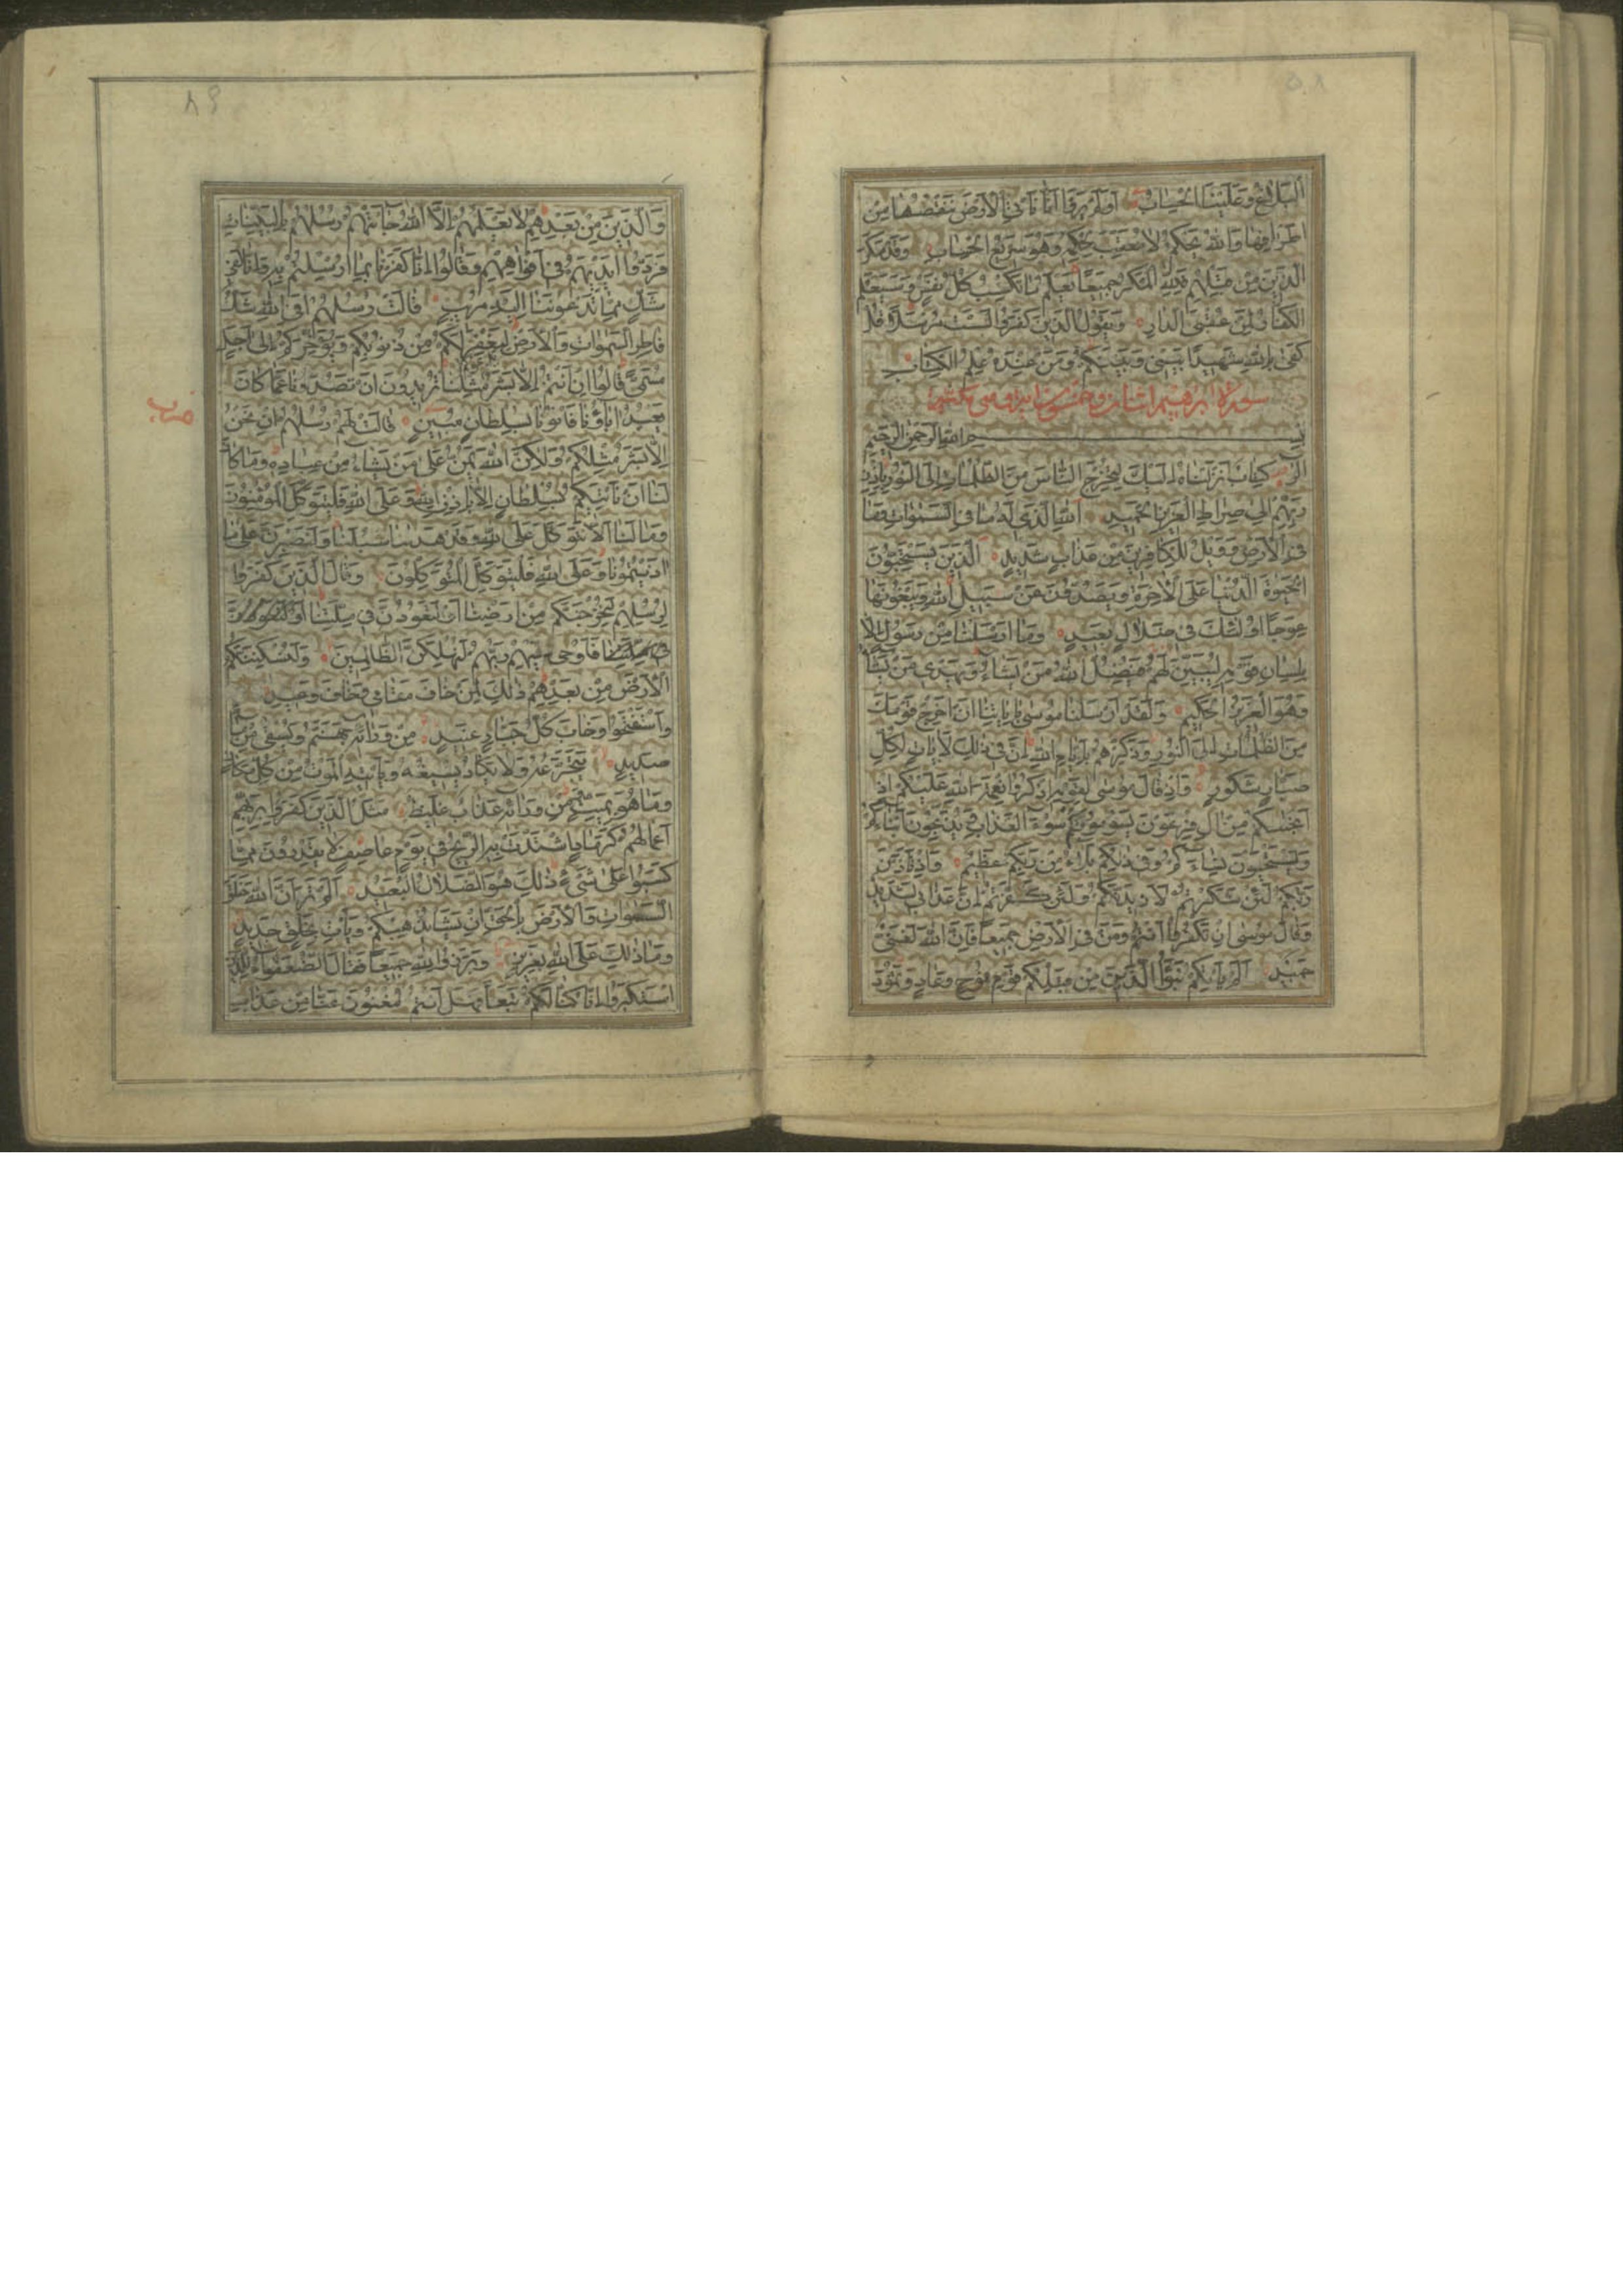 البَلَاغُ وَعَلَيْنَا الْحِسَابُ أَوَلَمْ يَرَوْا أَنَّا نَأْتِي الْأَرْضَ نَنْقُصُهَا مِنْ
أَطْرَافِهَا وَاللَّهُ يَحْكُمُ لَا مُعَقِّبَ لِحُكْمِهِ وَهُوَ سَرِيعُ الْحِسَابِ وَقَدْ مَكَرَ
الَّذِينَ مِنْ قَبْلِهِمْ فَلِلَّهِ الْمَكْرُ جَمِيعًا يَعْلَمُ مَا تَكْسِبُ كُلُّ نَفْسٍ وَسَيَعْلَمُ
الْكُفَّارُ لِمَنْ عُقْبَى الدَّارِ وَيَقُولُ الَّذِينَ كَفَرُوا لَسْتَ مُرْسَلًا قُلْ
كَفَى بِاللَّهِ شَهِيدًا بَيْنِي وَبَيْنَكُمْ وَمَنْ عِنْدَهُ عِلْمُ الْكِتَابِ
سورة ابرهيم اثنان وخمسون اية وهى مكية
بِسْمِ اللَّهِ الرَّحْمَنِ الرَّحِيمِ
الر كِتَابٌ أَنْزَلْنَاهُ إِلَيْكَ لِتُخْرِجَ النَّاسَ مِنَ الظُّلُمَاتِ إِلَى النُّورِ بِإِذْنِ
رَبِّهِمْ إِلَى صِرَاطِ الْعَزِيزِ الْحَمِيدِ اللَّهِ الَّذِي لَهُ مَا فِي السَّمَوَاتِ وَمَا
فِي الْأَرْضِ وَوَيْلٌ لِلْكَافِرِينَ مِنْ عَذَابٍ شَدِيدٍ الَّذِينَ يَسْتَحِبُّونَ
الْحَيَوةَ الدُّنْيَا عَلَى الْآخِرَةِ وَيَصُدُّونَ عَنْ سَبِيلِ اللَّهِ وَيَبْغُونَهَا
عِوَجًا أُولَئِكَ فِي ضَلَالٍ بَعِيدٍ وَمَا أَرْسَلْنَا مِنْ رَسُولٍ إِلَّا
بِلِسَانِ قَوْمِهِ لِيُبَيِّنَ لَهُمْ فَيُضِلُّ اللَّهُ مَنْ يَشَاءُ وَيَهْدِي مَنْ يَشَاءُ
وَهُوَ الْعَزِيزُ الْحَكِيمُ وَلَقَدْ أَرْسَلْنَا مُوسَى بِآيَاتِنَا أَنْ أَخْرِجْ قَوْمَكَ
مِنَ الظُّلُمَاتِ إِلَى النُّورِ وَذَكِّرْهُمْ بِأَيَّامِ اللَّهِ إِنَّ فِي ذَلِكَ لَآيَاتٍ لِكُلِّ
صَبَّارٍ شَكُورٍ وَإِذْ قَالَ مُوسَى لِقَوْمِهِ اذْكُرُوا نِعْمَةَ اللَّهِ عَلَيْكُمْ إِذْ
أَنْجَيكُمْ مِنْ آلِ فِرْعَوْنَ يَسُومُونَكُمْ سُوءَ الْعَذَابِ وَيُذَبِّحُونَ أَبْنَاءَكُمْ
وَيَسْتَحْيُونَ نِسَاءَكُمْ وَفِي ذَلِكُمْ بَلَاءٌ مِنْ رَبِّكُمْ عَظِيمٌ وَإِذْ تَأَذَّنَ
رَبُّكُمْ لَئِنْ شَكَرْتُمْ لَأَزِيدَنَّكُمْ وَلَئِنْ كَفَرْتُمْ إِنَّ عَذَابِي لَشَدِيدٌ
وَقَالَ مُوسَى إِنْ تَكْفُرُوا أَنْتُمْ وَمَنْ فِي الْأَرْضِ جَمِيعًا فَإِنَّ اللَّهَ لَغَنِيٌّ
حَمِيدٌ أَلَمْ يَأْتِكُمْ نَبَؤُا الَّذِينَ مِنْ قَبْلِكُمْ قَوْمِ نُوحٍ وَعَادٍ وَثَمُودَ
٨٩
وَالَّذِينَ مِنْ بَعْدِهِمْ لَا يَعْلَمُهُمْ إِلَّا اللَّهُ جَاءَتْهُمْ رُسُلُهُمْ بِالْبَيِّنَاتِ
فَرَدُّوا أَيْدِيَهُمْ فِي أَفْوَاهِهِمْ وَقَالُوا إِنَّا كَفَرْنَا بِمَا أُرْسِلْتُمْ بِهِ وَإِنَّا لَفِي
شَكٍّ مِمَّا تَدْعُونَنَا إِلَيْهِ مُرِيبٍ قَالَتْ رُسُلُهُمْ أَفِي اللَّهِ شَكٌّ
فَاطِرِ السَّمَوَاتِ وَالْأَرْضِ لِيَغْفِرَ لَكُمْ مِنْ ذُنُوبِكُمْ وَيُؤَخِّرَكُمْ إِلَى أَجَلٍ
مُسَمًّى قَالُوا إِنْ أَنْتُمْ إِلَّا بَشَرٌ مِثْلُنَا تُرِيدُونَ أَنْ تَصُدُّونَا عَمَّا كَانَ
يَعْبُدُ آبَاؤُنَا فَأْتُونَا بِسُلْطَانٍ مُبِينٍ قَالَتْ لَهُمْ رُسُلُهُمْ إِنْ نَحْنُ
إِلَّا بَشَرٌ مِثْلُكُمْ وَلَكِنَّ اللَّهَ يَمُنُّ عَلَى مَنْ يَشَاءُ مِنْ عِبَادِهِ وَمَا كَانَ
لَنَا أَنْ نَأْتِيَكُمْ بِسُلْطَانٍ إِلَّا بِإِذْنِ اللَّهِ وَعَلَى اللَّهِ فَلْيَتَوَكَّلِ الْمُؤْمِنُونَ
وَمَا لَنَا أَلَّا نَتَوَكَّلَ عَلَى اللَّهِ وَقَدْ هَدَينَا سُبُلَنَا وَلَنَصْبِرَنَّ عَلَى مَا
آذَيْتُمُونَا وَعَلَى اللَّهِ فَلْيَتَوَكَّلِ الْمُتَوَكِّلُونَ وَقَالَ الَّذِينَ كَفَرُوا
لِرُسُلِهِمْ لَنُخْرِجَنَّكُمْ مِنْ أَرْضِنَا أَوْ لَتَعُودُنَّ فِي مِلَّتِنَا
فَأَوْحَى إِلَيْهِمْ رَبُّهُمْ لَنُهْلِكَنَّ الظَّالِمِينَ وَلَنُسْكِنَنَّكُمُ
الْأَرْضَ مِنْ بَعْدِهِمْ ذَلِكَ لِمَنْ خَافَ مَقَامِي وَخَافَ وَعِيدِ
وَاسْتَفْتَحُوا وَخَابَ كُلُّ جَبَّارٍ عَنِيدٍ مِنْ وَرَائِهِ جَهَنَّمُ وَيُسْقَى مِنْ مَاءٍ
صَدِيدٍ يَتَجَرَّعُهُ وَلَا يَكَادُ يُسِيغُهُ وَيَأْتِيهِ الْمَوْتُ مِنْ كُلِّ مَكَانٍ
وَمَا هُوَ بِمَيِّتٍ وَمِنْ وَرَائِهِ عَذَابٌ غَلِيظٌ مَثَلُ الَّذِينَ كَفَرُوا بِرَبِّهِمْ
أَعْمَالُهُمْ كَرَمَادٍ اشْتَدَّتْ بِهِ الرِّيحُ فِي يَوْمٍ عَاصِفٍ لَا يَقْدِرُونَ مِمَّا
كَسَبُوا عَلَى شَيْءٍ ذَلِكَ هُوَ الضَّلَالُ الْبَعِيدُ أَلَمْ تَرَ أَنَّ اللَّهَ خَلَقَ
السَّمَوَاتِ وَالْأَرْضَ بِالْحَقِّ إِنْ يَشَأْ يُذْهِبْكُمْ وَيَأْتِ بِخَلْقٍ جَدِيدٍ
وَمَا ذَلِكَ عَلَى اللَّهِ بِعَزِيزٍ وَبَرَزُوا لِلَّهِ جَمِيعًا فَقَالَ الضُّعَفَاءُ لِلَّذِينَ
اسْتَكْبَرُوا إِنَّا كُنَّا لَكُمْ تَبَعًا فَهَلْ أَنْتُمْ مُغْنُونَ عَنَّا مِنْ عَذَابِ